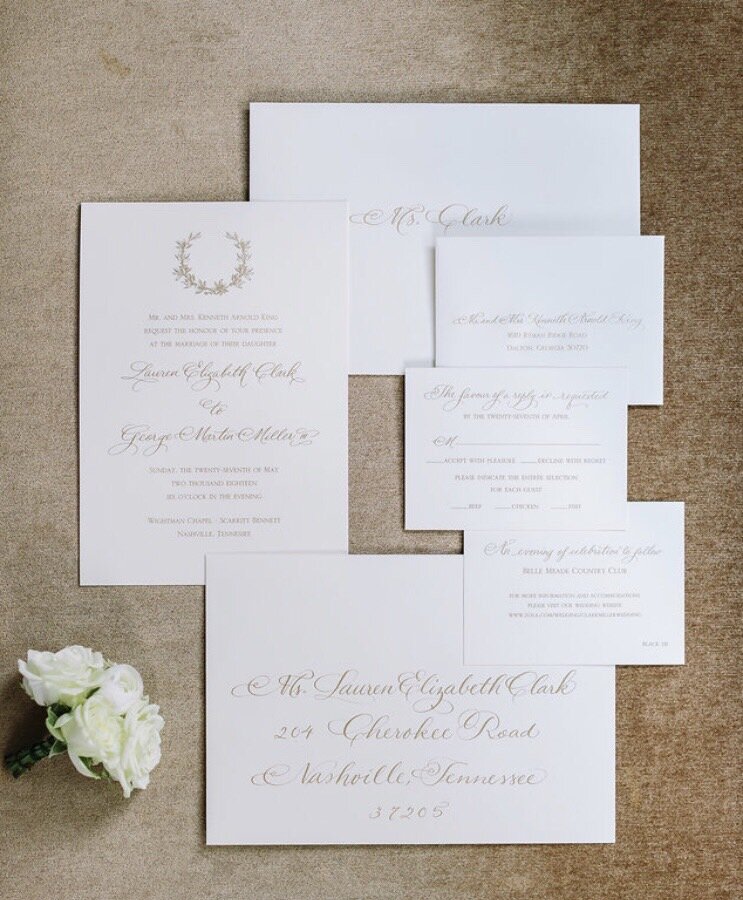 Ms. Clark
MR. AND MRS. KENNETH ARNOLD KING
REQUEST THE HONOUR OF YOUR PRESENCE
AT THE MARRIAGE OF THEIR DAUGHTER
Lauren Elizabeth Clark
to
George Martin Miller IV
SUNDAY, THE TWENTY-SEVENTH OF MAY
TWO THOUSAND EIGHTEEN
SIX O'CLOCK IN THE EVENING
WIGHTMAN CHAPEL · SCARRITT BENNETT
NASHVILLE, TENNESSEE
Mr. and Mrs. Kenneth Arnold King
RIDGE ROAD
DALTON, GEORGIA 30720
The favour of a reply is requested
BY THE TWENTY-SEVENTH OF APRIL
M
ACCEPT WITH PLEASURE DECLINE WITH REGRET
PLEASE INDICATE THE ENTRÉE SELECTION
FOR EACH GUEST
BEEF CHICKEN FISH
An evening of celebration to follow
BELLE MEADE COUNTRY CLUB
FOR MORE INFORMATION AND ACCOMMODATIONS
PLEASE VISIT OUR WEDDING WEBSITE
BLACK TIE
Ms. Lauren Elizabeth Clark
204 Cherokee Road
Nashville, Tennessee
37205